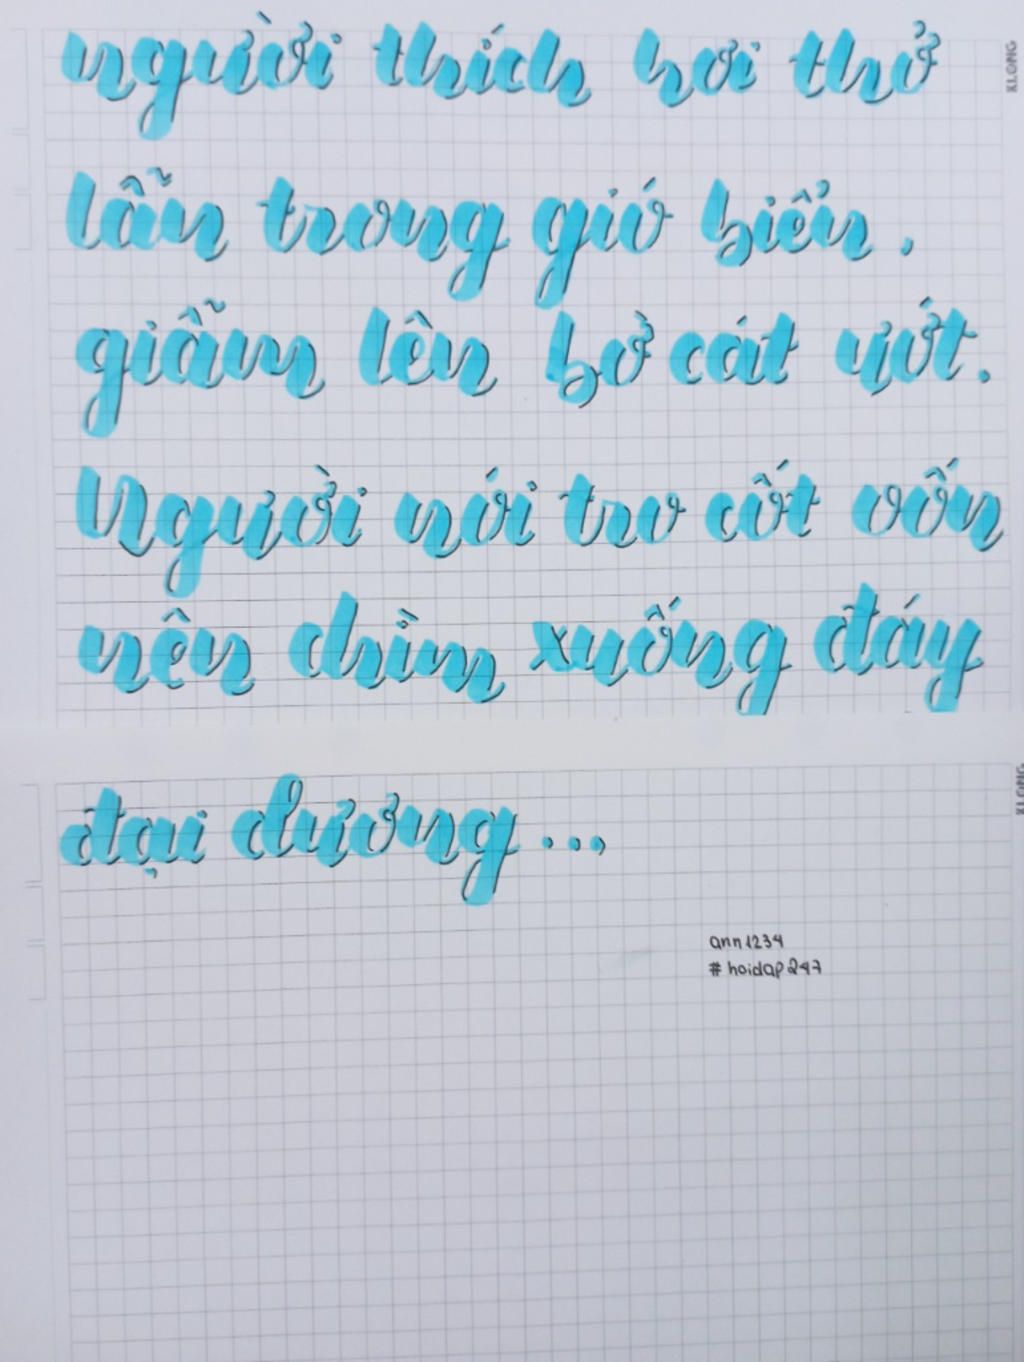 người thích hơi thở
lẫn trong gió biển.
giẫm lên bờ cát ướt.
Người nói tro cốt vốn
nên chìm xuống đáy
đại dương...
ann1234
#hoidap247
KLONG
KLONG